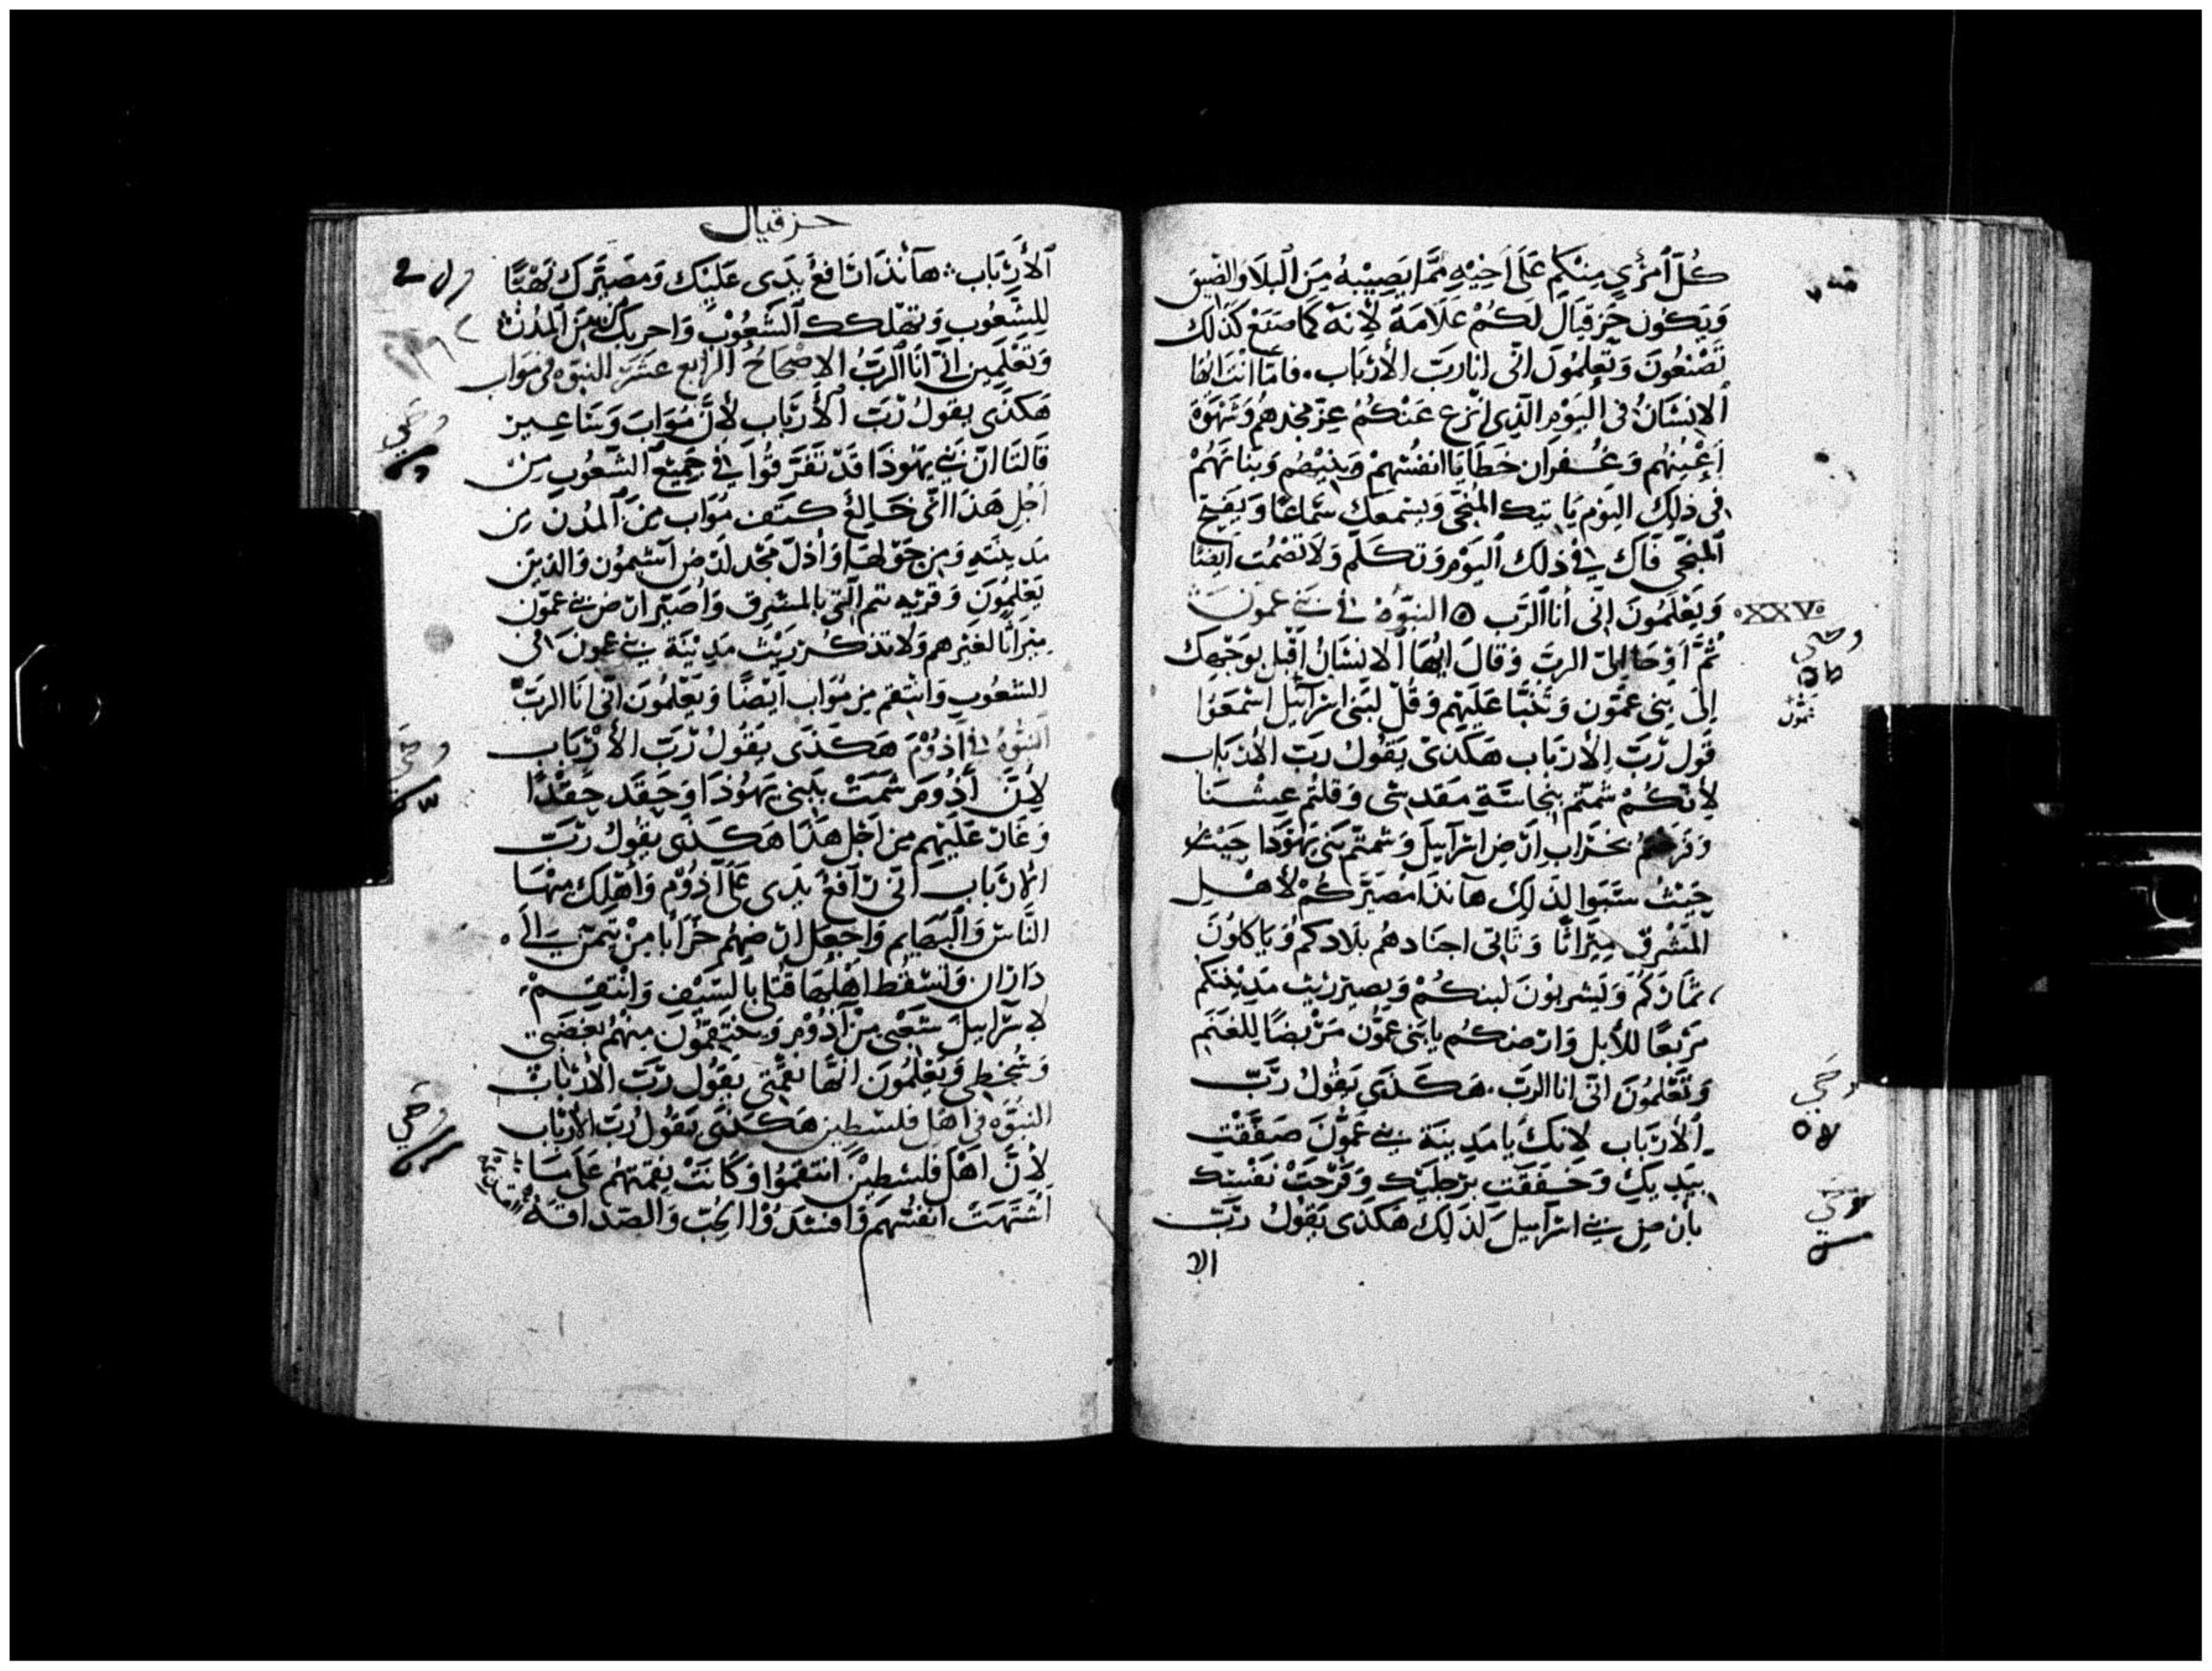 كُلّ ٱمْرُيٍ مِنْكُم عَلَى اَخِيْهِ مِمَّا يَصِيْبُهُ مِنَ اْلبَلَا وَالضِّيق
وَيَكُون حَزقيَالَ لَكُمْ عَلَامَةً لِاَنهُ كَمَا صَنَعْ كَذلَك
تَصْنَعُونَ وَتَعلمُونَ انّى انا رَبّ الأرْبَاب. فامَّا انْتَ ايُّهَا
ٱلاِنسَانُ فى اليَوْمِ الّذِى انْزع عَنْكُمُ عِزّ مجْدهمُ وَشَهْوَة
اَعْيُنِهُم وَغُفرَان خَطَايَا انفُسْهِمْ وَبنيْهُم وَبَنَاتَهُمْ
فى ذلكَ اليَوْم يَاتيك المُنجّى وَيسْمعَك سَمَاعًا وَيَفتح
اَلمنجّى فَاك فِي ذلكَ اليَوْم وَتكَلّم وَلاَ تَصْمُت ايضًا
وَيَعْلَمُونَ انّى أنا الرَّب ۞ النبوّة في بني عمون
XXV
ثُمَّ اَوْحَا اِلىّ الربَّ وَقالَ ايُّهَا اَلانسَان اَقْبل بوَجْهكَ
اِلَى بنِى عَمُّون وَتنَبَّا عَلَيْهِم وَقُلْ لبَنى اسْرآئيل اسْمَعُوا
قَول رَبّ الأربَاب هَكذىْ يَقُولُ رَبّ الأربَاب
لأنكُمْ شمتّم بنجَاسَة مَقدسِى وَقلتُم عِيشنَا
بخرَابِ ارْضِ اسْرَآئيلَ وَشمتّم ببَنى يَهُوْدَا حَيْث
حَيْثُ سُبَوا لذَلك هآنذَا مُصَيّرَكُمْ لأهْل
المَشْرق مِيْرَاثًا وَتَاتى اجنَادهُم بلَادكم وَيَاكلُونَ
ثمَاركُم وَيَشربُونَ لبنكُمْ وَيصيّر ريْث مَدِينتكُم
مَرْبَعًا للأبل وَارْضكُم يا بَنى عمُّون مَرْبضًا للغَنَم
وَتَعْلمُونَ انّى انا الربّ. هَكَذَى يَقولُ رَبّ
اَلأربَاب لانكَ يا مَدِينَة بني عَمُّونَ صَفّقْت
بيَديك وَخَفقت برجليْك وَفَرْحَتْ نفسْك
بأرْضِ بني اسْرآئيلَ لذَلِك هَكذى يَقولُ رَبّ
الا
حزقيال
ٱلأرْبَاب هآنذَا رَافع يَدى عَلَيْك وَمصَيّرك نَهْبًا
للشّعُوب وَتهْلكك الشّعُوْب وَاخربك مِنَ المُدُنْ
وَتعْلَمِين انّى أنَا الرَّبّ الاِصْحَاحُ الرَّابع عَشَرَ النبوّه في مَوَاب
هَكذَى يقولُ رَبّ الأربَاب لأنَّ مُوَابَ وَسَاعير
قَالتَا انّ بَني يَهُوذَا قَدْ تَفَرَّقُوا في جَمِيْع الشّعُوبِ مِنْ
اَجْل هَذَا انّى خَالع كتَف مُوَاب مِنَ المُدُنِ مِن
مَدِينَتهِ وَمِن حَوْلهَا وَأذلّ مَجْد وَالذِين
يَعْلمُونَ وَقريه تتم التِى بالمشرق وَأصَيّر ارْض بني عمّون
مِيْرَاثًا لغَيْرهم وَلا تذكُر رَيْث مَدِيْنَة بني عمونَ فى
الشعُوب وَانتقم مِن مُوَاب ايْضًا وَيَعْلمُونَ انّى انَا الرَبّ
النبوّة في أدُوْم هَكَذَى يَقُولُ رَبّ الأرْبَاب
لأنَّ أدُوم شمَتْ ببَنى يَهُوذَا وَحَقَد حِقدًا
وَغَارَ عَلَيْهِم مِن اَجْل هذَا هَكَذَى يقُولُ رَبّ
الأرْبَاب انّى رَافعُ يدَى عَلَى آدُوْم وَاُهْلك مِنْهَا
النَّاسَ وَالبَهَايم وَاجْعَل ارْضهُم خَرَابًا مِنْ تيْمن الى
دَارَان وَتسْقُط اهْلهَا قتلى بالسَّيْف وَانْتقِمْ
لاسْرَآئيلَ شَعْبى مِنْ آدُوْم وَيَنتقِمُونَ مِنْهُمْ بغَضَبى
وَسُخطى وَيَعْلَمُونَ انّهَا نقمَتى يَقُول رَبّ الأرْبَاب
النبُوّة فى اهْل فلسْطين هَكَذَى يَقُولُ رَبّ الأرْبَاب
لأنَّ اهْل فلسْطيْن انتَقمُوا وَكَانَتْ نِقمَتهُمْ عَلَى مَا
اَشْتَهَتَ انفُسْهُم وَافسَدُوْا الحُبّ وَالصّدَاقَة